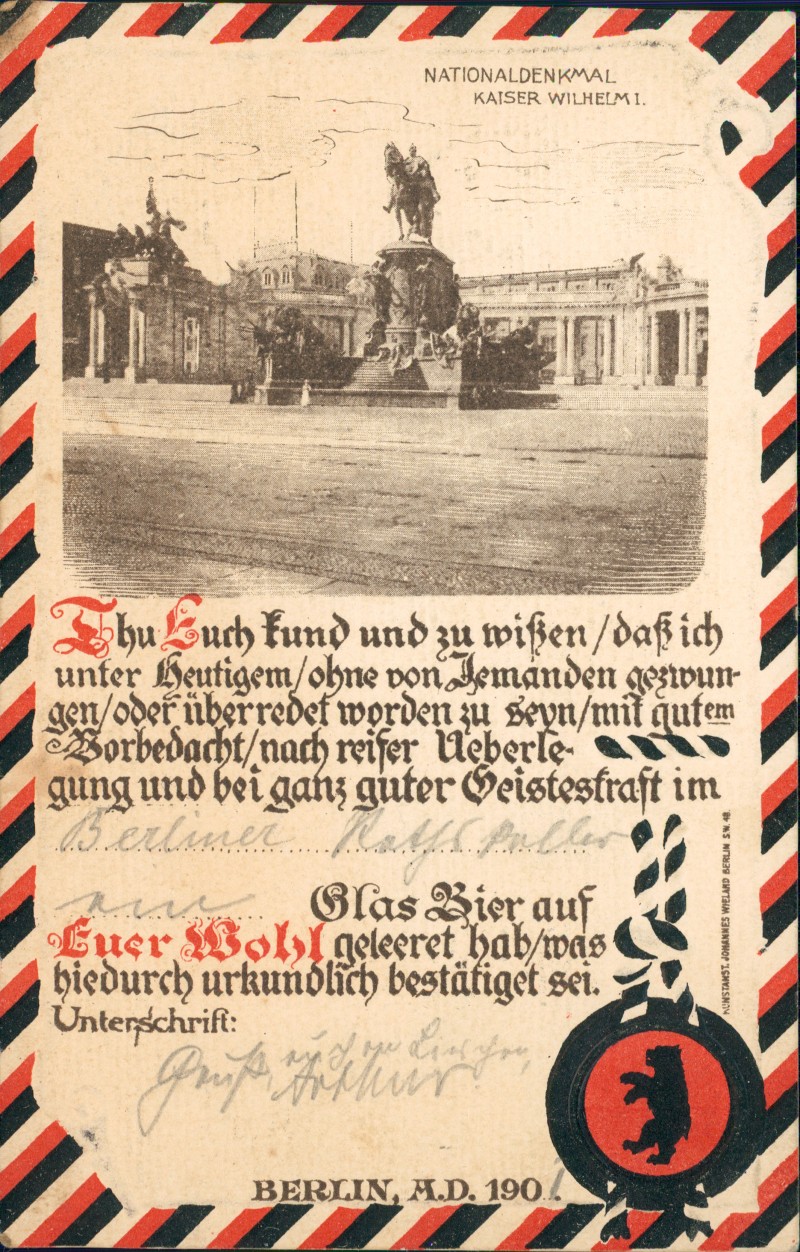 NATIONALDENKMAL
KAISER WILHELM I.
Thu Euch kund und zu wißen/daß ich
unter Heutigem/ohne von Jemanden gezwun-
gen/oder überredet worden zu seyn/mit gutem
Vorbedacht/nach reifer Ueberle-
gung und bei ganz guter Geisteskraft im
Berliner Rathskeller
ein Glas Bier auf
Euer Wohl geleeret hab/was
hiedurch urkundlich bestätiget sei.
Unterschrift:
Gruß
Arthur
KUNSTANST. JOHANNES WIELAND BERLIN S.W. 48.
BERLIN, A.D. 190